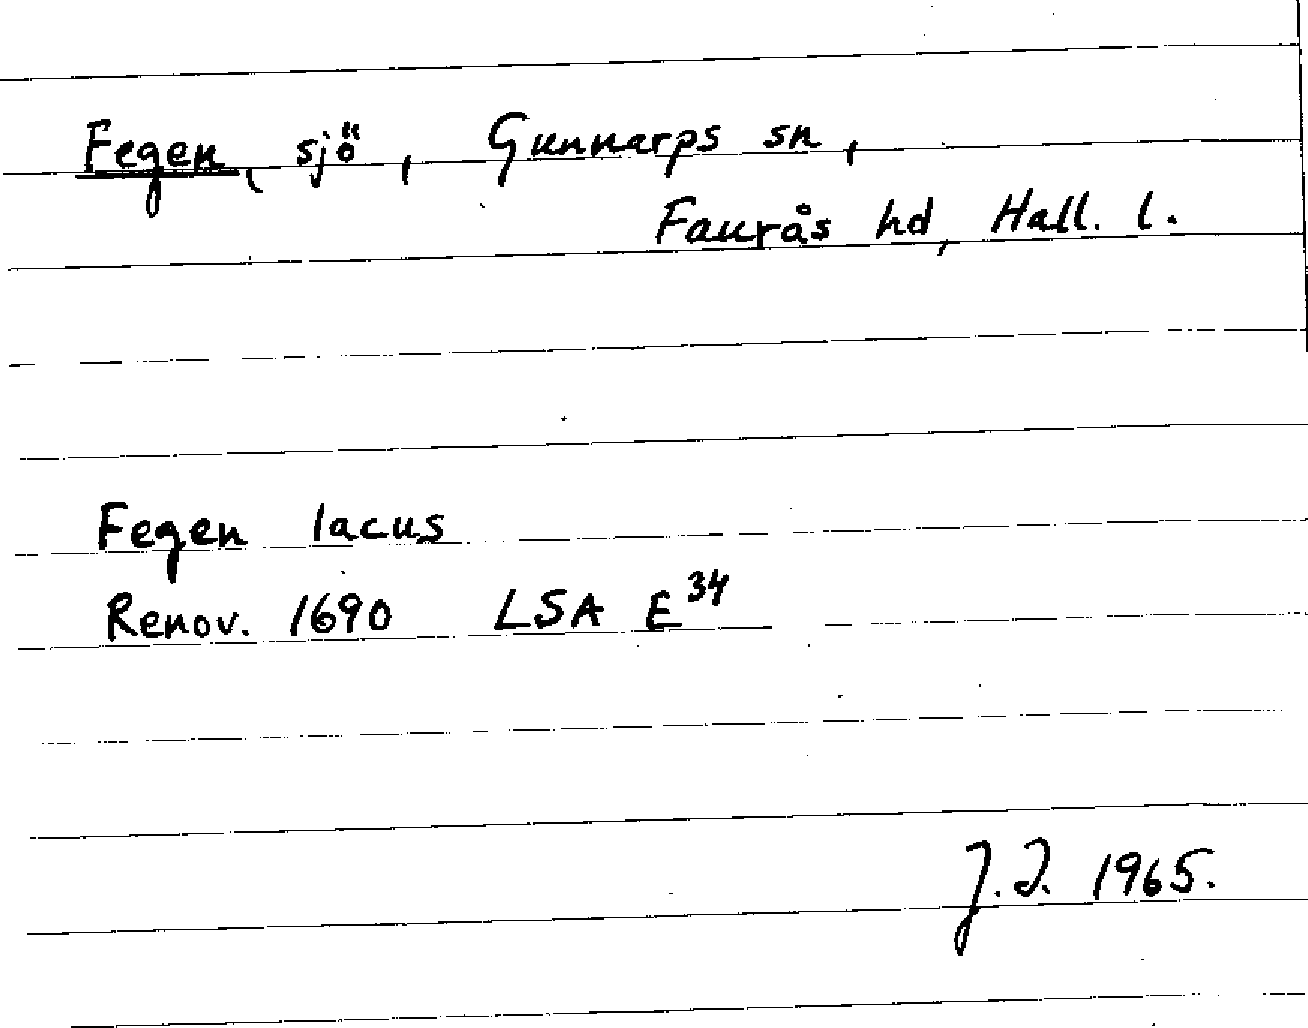 Fegen, sjö, Gunnarps sn,
Faurås hd, Hall. l.
Fegen lacus
Renov. 1690 LSA E³⁴
J.I. 1965.